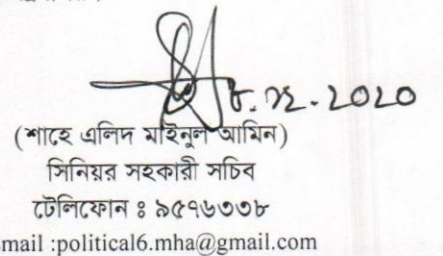 ৮. ১২. ২০২০
(শাহে এলিদ মাইনুল আমিন)
সিনিয়র সহকারী সচিব
টেলিফোন ঃ ৯৫৭৬৩৩৮
mail :political6.mha@gmail.com